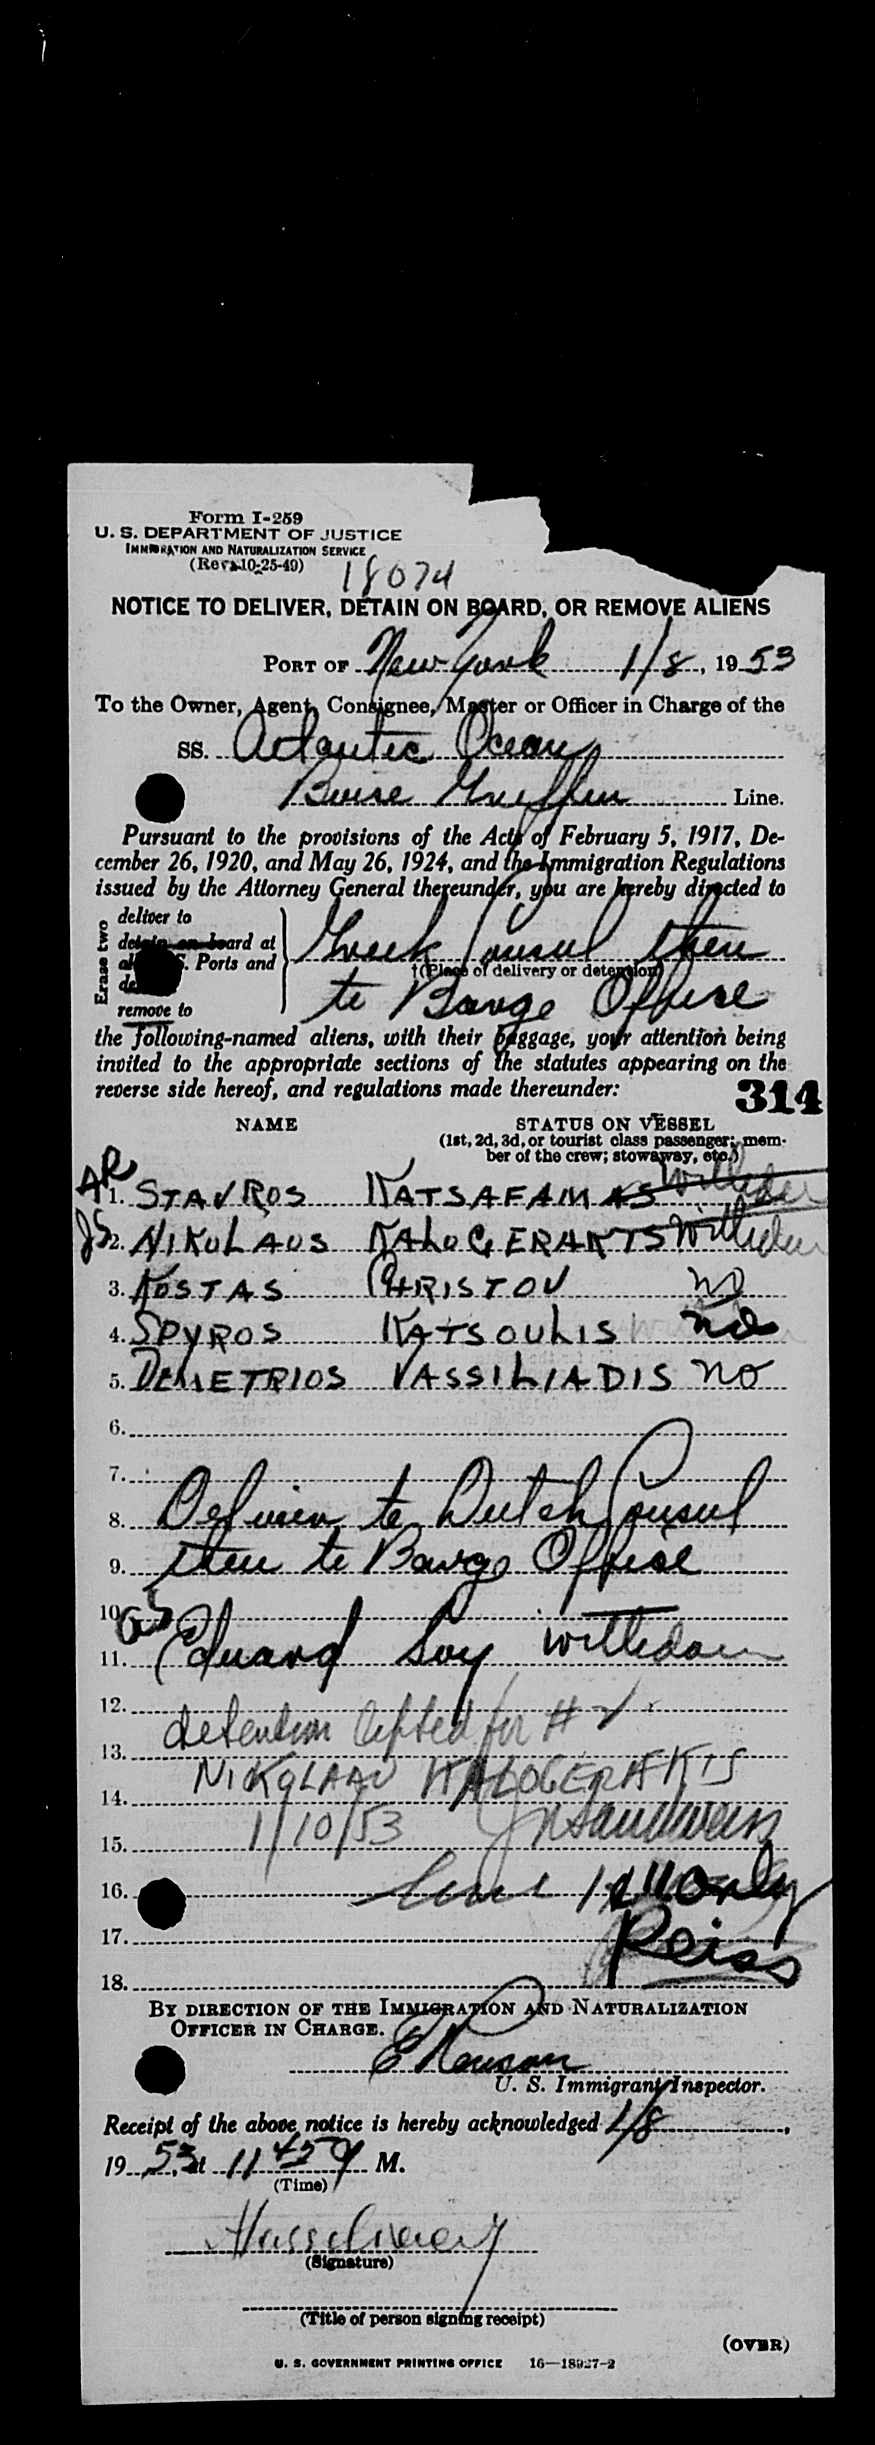 Form I-259
U. S. DEPARTMENT OF JUSTICE
IMMIGRATION AND NATURALIZATION SERVICE
(Rev. 10-25-49)
18074
NOTICE TO DELIVER, DETAIN ON BOARD, OR REMOVE ALIENS
PORT OF New York 1/8, 1953
To the Owner, Agent, Consignee, Master or Officer in Charge of the
SS. Atlantic Ocean
Line.
Pursuant to the provisions of the Acts of February 5, 1917, De-
cember 26, 1920, and May 26, 1924, and the Immigration Regulations
issued by the Attorney General thereunder, you are hereby directed to
Erase two
deliver to
detain on board at
all U. S. Ports and
remove to
Greek Consul then
†(Place of delivery or detention)
to Barge Office
the following-named aliens, with their baggage, your attention being
invited to the appropriate sections of the statutes appearing on the
reverse side hereof, and regulations made thereunder:
314
NAME STATUS ON VESSEL
(1st, 2d, 3d, or tourist class passenger; mem-
ber of the crew; stowaway, etc.)
AR 1. STAVROS KATSAFAMAS
2. NIKOLAOS KALOGERAKIS
3. KOSTAS CHRISTOU no
4. SPYROS KATSOULIS no
5. DEMETRIOS VASSILIADIS no
6.
7.
8. Deliver to Dutch Consul
9. then to Barge Office
10.
11. Eduard
12.
detention lifted for # 2
13.
NIKOLAAU KALOGERAKIS
14.
1/10/53
15.
16. only
17. Reiss
18.
BY DIRECTION OF THE IMMIGRATION AND NATURALIZATION
OFFICER IN CHARGE.
U. S. Immigrant Inspector.
Receipt of the above notice is hereby acknowledged 1/8,
1953, at 11 45 M.
(Time)
(Signature)
(Title of person signing receipt)
(OVER)
U. S. GOVERNMENT PRINTING OFFICE 16—18927-2